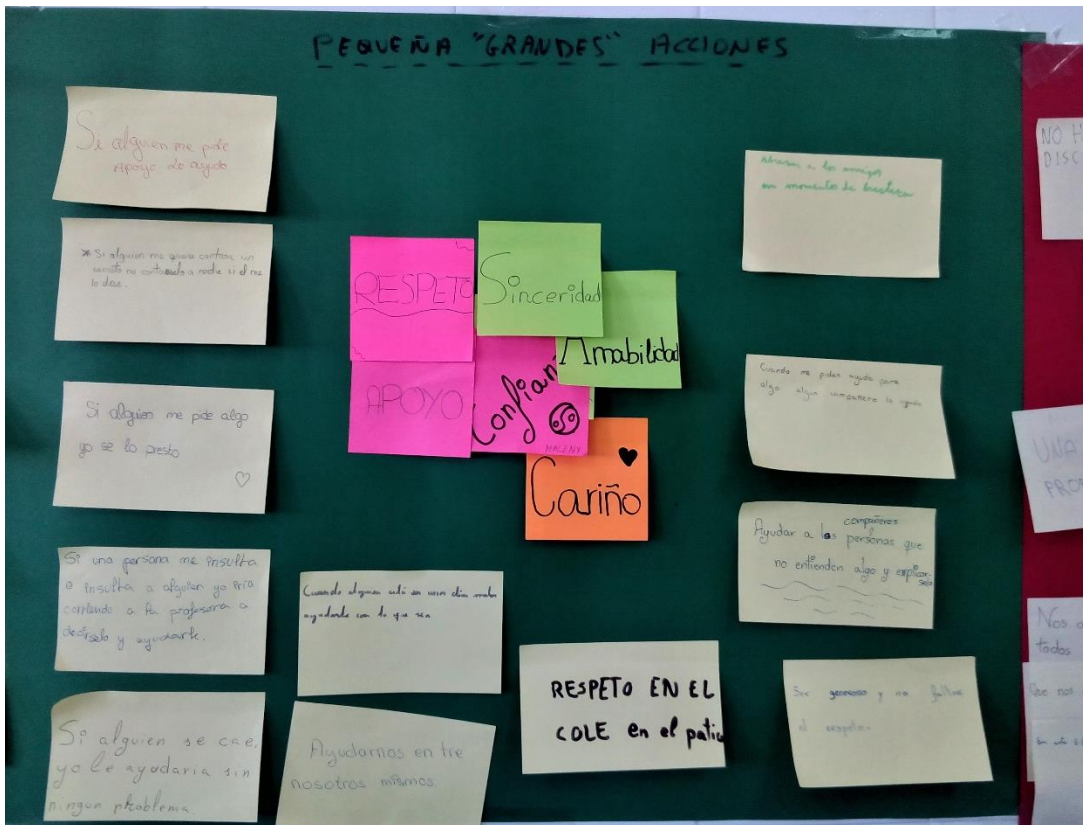 PEQUEÑA "GRANDES" ACCIONES
Si alguien me pide
Apoyo Lo ayudo
* Si alguien me quiere contar un
secreto no contárselo a nadie si el me
lo dice.
Si alguien me pide algo
yo se lo presto
Si una persona me insulta
o insulta a alguien yo iría
corriendo a la profesora a
decirselo y ayudarle.
Si alguien se cae,
yo le ayudaria sin
ningun ploblema
RESPETO
Sinceridad
Amabilidad
APOYO
Confian
Cariño
Cuando alguien esté en un día malo
ayudarle con lo que sea
Ayudarnos en tre
nosotros mismos.
RESPETO EN EL
COLE en el patio
Abrazar a los amigos
en momentos de tristeza
Cuando me piden ayuda para
algo algun compañero le ayudo
compañeros
Ayudar a las personas que
no entienden algo y explicar
selo
Ser generoso y no faltar
el respeto.
NO H
DISC
UNA
PRO
Nos a
todos
Que nos